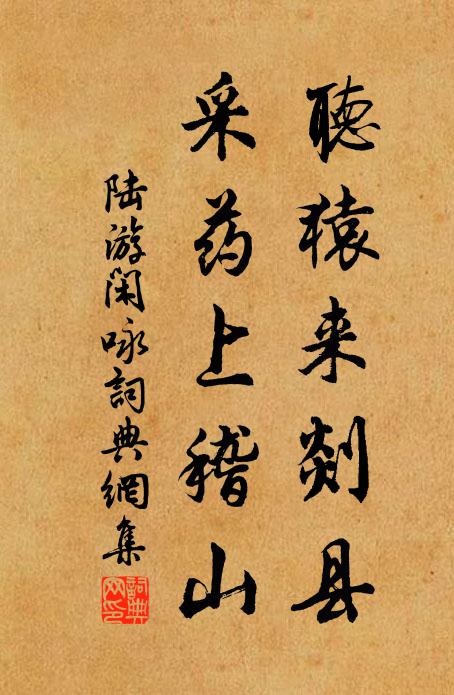 聽猿来剡县
采药上稽山
陆游闲咏詞典網集
詞典
网印